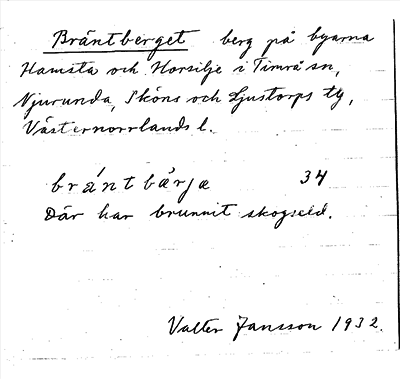 Bräntberget berg på byarna
Hamsta och Horsilje i Timrå sn,
Njurunda, Sköns och Ljustorps tg,
Västernorrlands l.
bräntbärja 34
Där har brunnit skogseld.
Valter Jansson 1932.